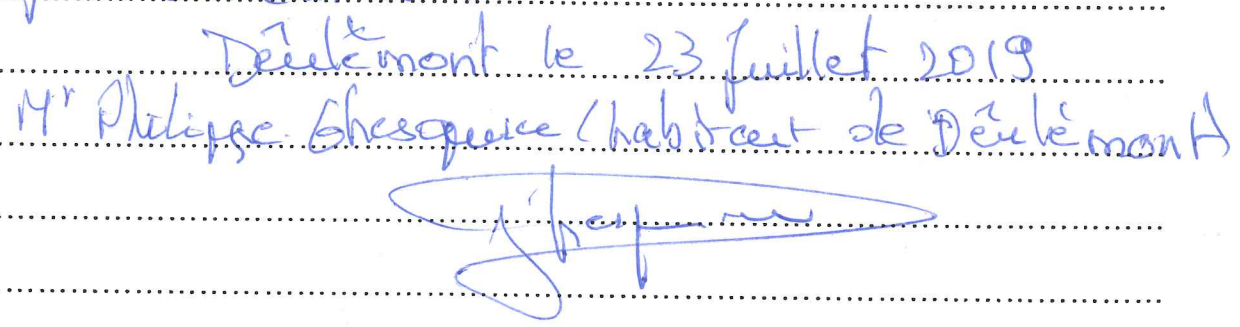 Deûlémont le 23 Juillet 2019
Mr Philippe Ghesquiere (habitant de Deûlémont)